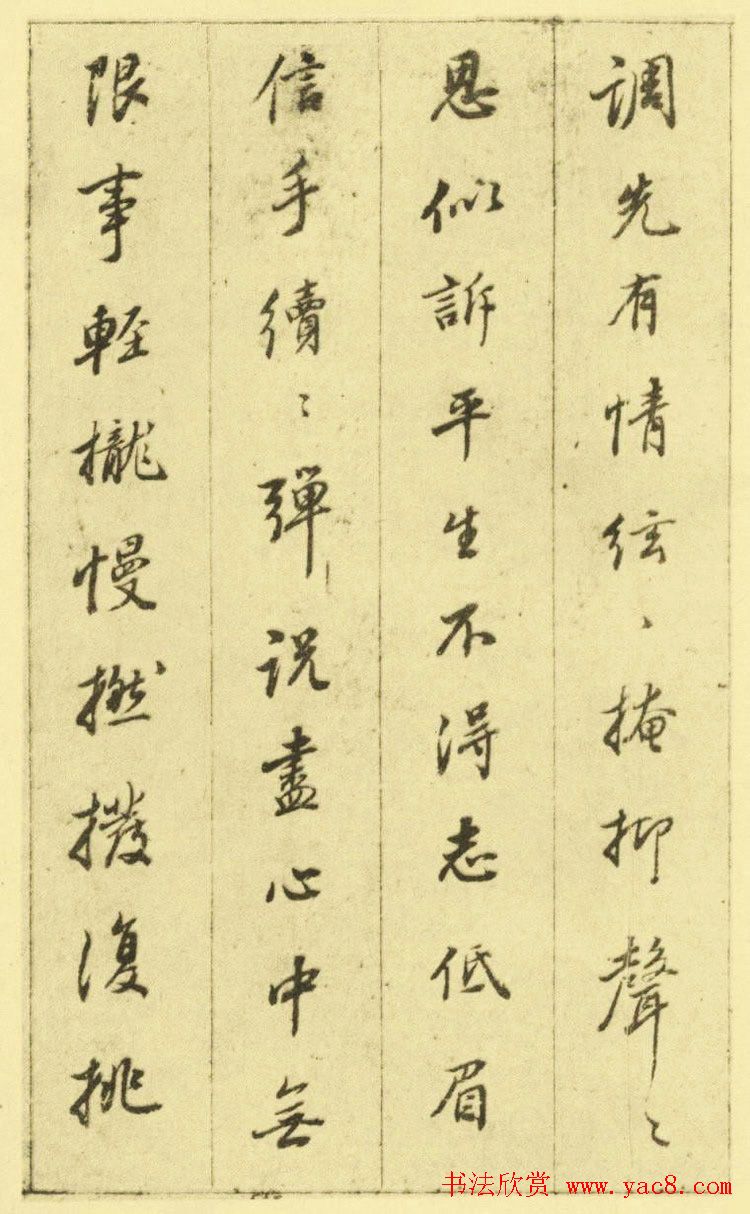 調先有情絃丶掩抑聲〻
思似訴平生不得志低眉
信手續〻彈說盡心中無
限事輕攏慢撚撥復挑
书法欣赏 www.yac8.com